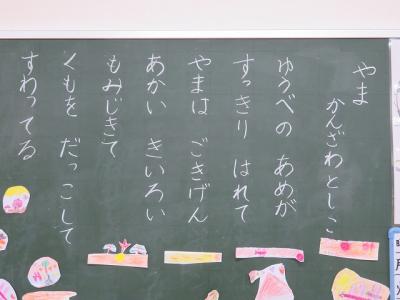 やま
かんざわとしこ
ゆうべの あめが
すっきり はれて
やまは ごきげん
あかい きいろい
もみじきて
くもを だっこして
すわってる